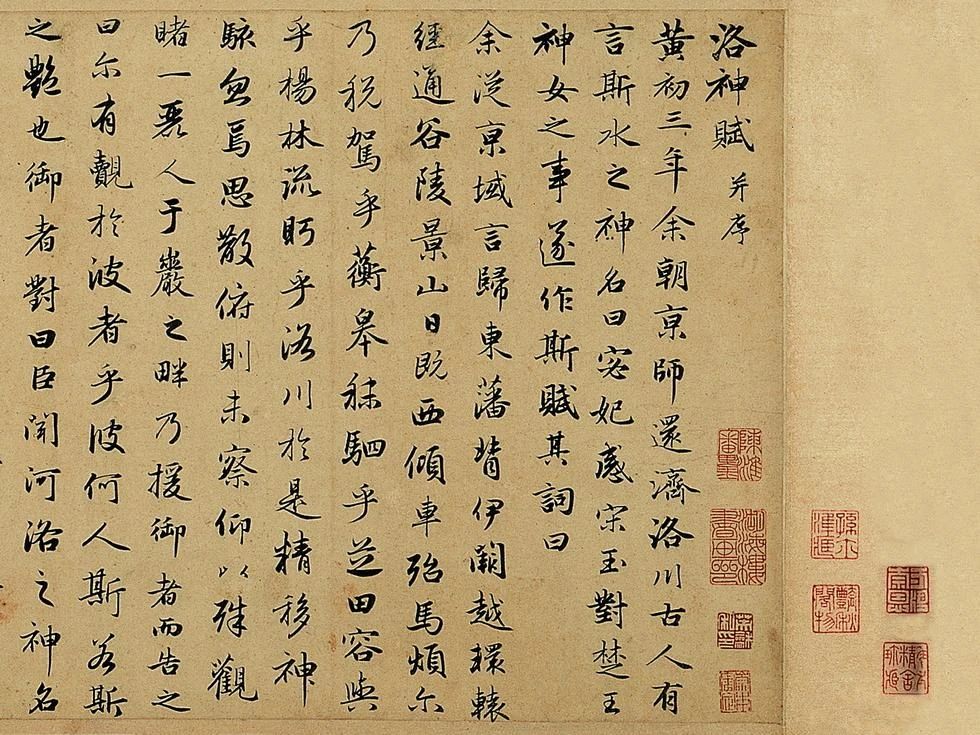 洛神賦 并序
黃初三年余朝京師還濟洛川古人有
言斯水之神名曰宓妃感宋玉對楚王
神女之事遂作斯賦其詞曰
余從京域言歸東藩背伊闕越轘轅
經通谷陵景山日既西傾車殆馬煩尒
乃稅駕乎蘅皋秣駟乎芝田容與
乎楊林流眄乎洛川於是精移神
駭忽焉思散俯則未察仰以殊觀
睹一麗人于巖之畔乃援御者而告之
曰尒有覿於彼者乎彼何人斯若斯
之艷也御者對曰臣聞河洛之神名